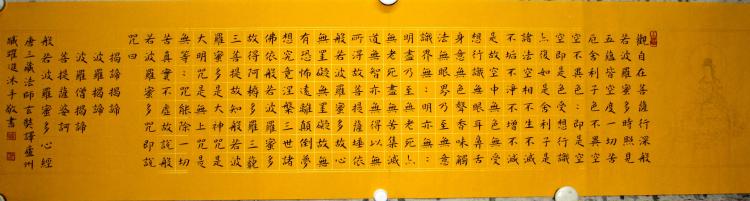 觀自在菩薩行深般
若波羅蜜多時照見
五蘊皆空度一切苦
厄舍利子色不異空
空不異色:即是空
空即是色受想行識
亦復如是舍利子是
諸法空相不生不滅
不垢不淨不增不減
是故空中無色無受
想行識無眼耳鼻舌
身意無色聲香味觸
法無眼界乃至無意
識界無:明亦無:
明盡乃至無老死亦
無老死盡無苦集滅
道無智亦無得以無
所得故菩提薩埵依
般若波羅蜜多故心
無罣礙無罣礙故無
有恐怖遠離顛倒夢
想究竟涅槃三世諸
佛依般若波羅蜜多
故得阿耨多羅三藐
三菩提故知般若波
羅蜜多是大神咒是
大明咒是無上咒是
無等:咒能除一切
苦真實不虛故說般
若波羅蜜多咒即說
咒曰
揭諦揭諦
波羅揭諦
波羅僧揭諦
菩提薩婆訶
般若波羅蜜多心經
唐三藏法師玄奘譯瀘州
臧躍進沐手敬書